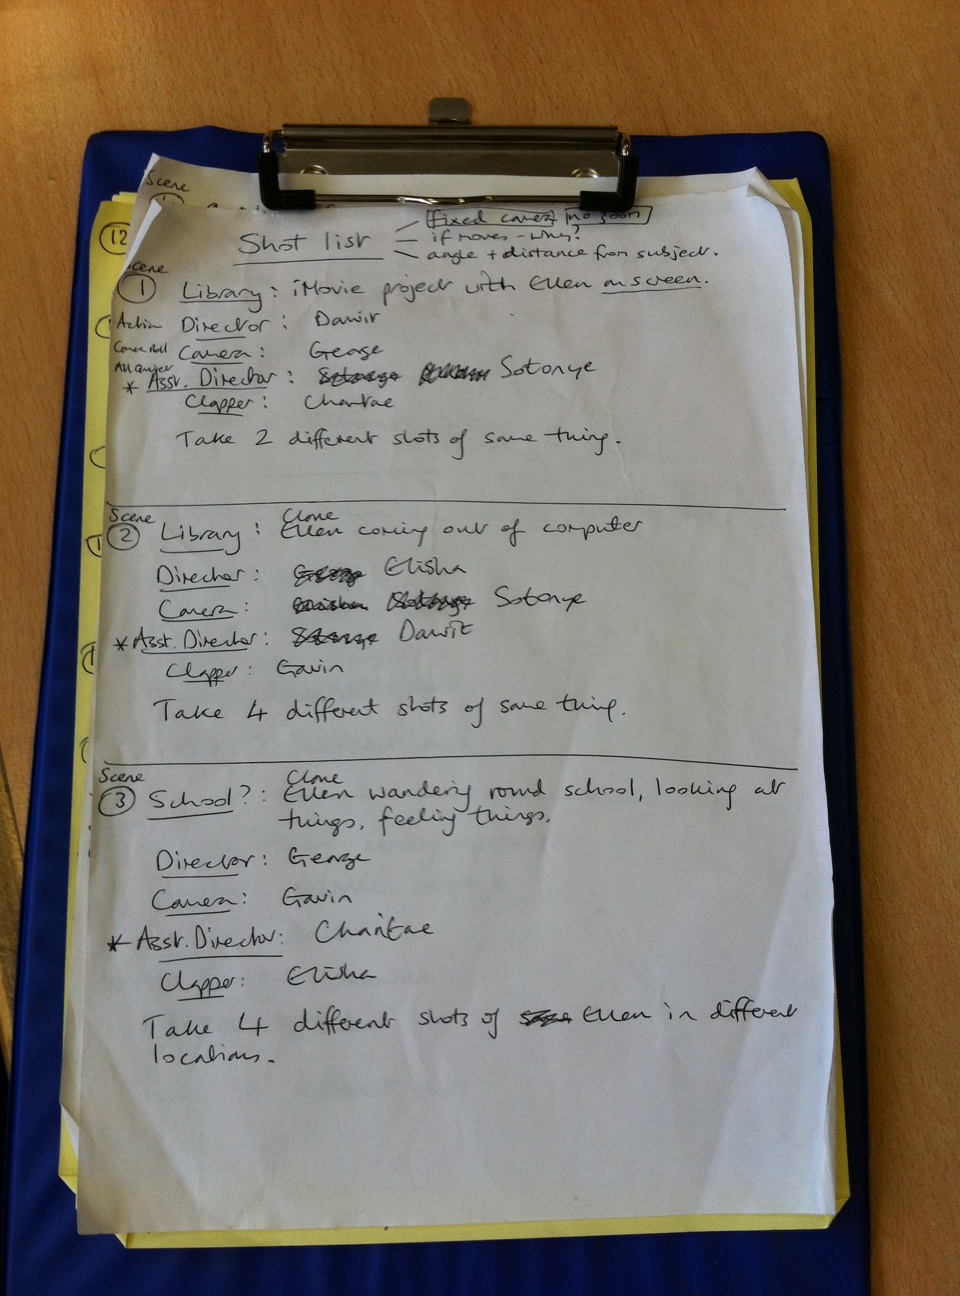 Scene
12
fixed camera no zoom
Shot list
if moves - why?
angle + distance from subject.
Scene
1 Library: iMovie project with Ellen on screen.
Action Director: Dawit
Camera Roll Camera: George
All Quiet
* Asst. Director: Sotonye
Clapper: Chantae
Take 2 different shots of same thing.
Scene
Clone
2 Library: Ellen coming out of computer
Director: Elisha
Camera: Sotonye
* Asst. Director: Dawit
Clapper: Gavin
Take 4 different shots of same thing.
Scene
Clone
3 School?: Ellen wandering round school, looking at
things, feeling things.
Director: George
Camera: Gavin
* Asst. Director: Chantae
Clapper: Elisha
Take 4 different shots of Ellen in different
locations.